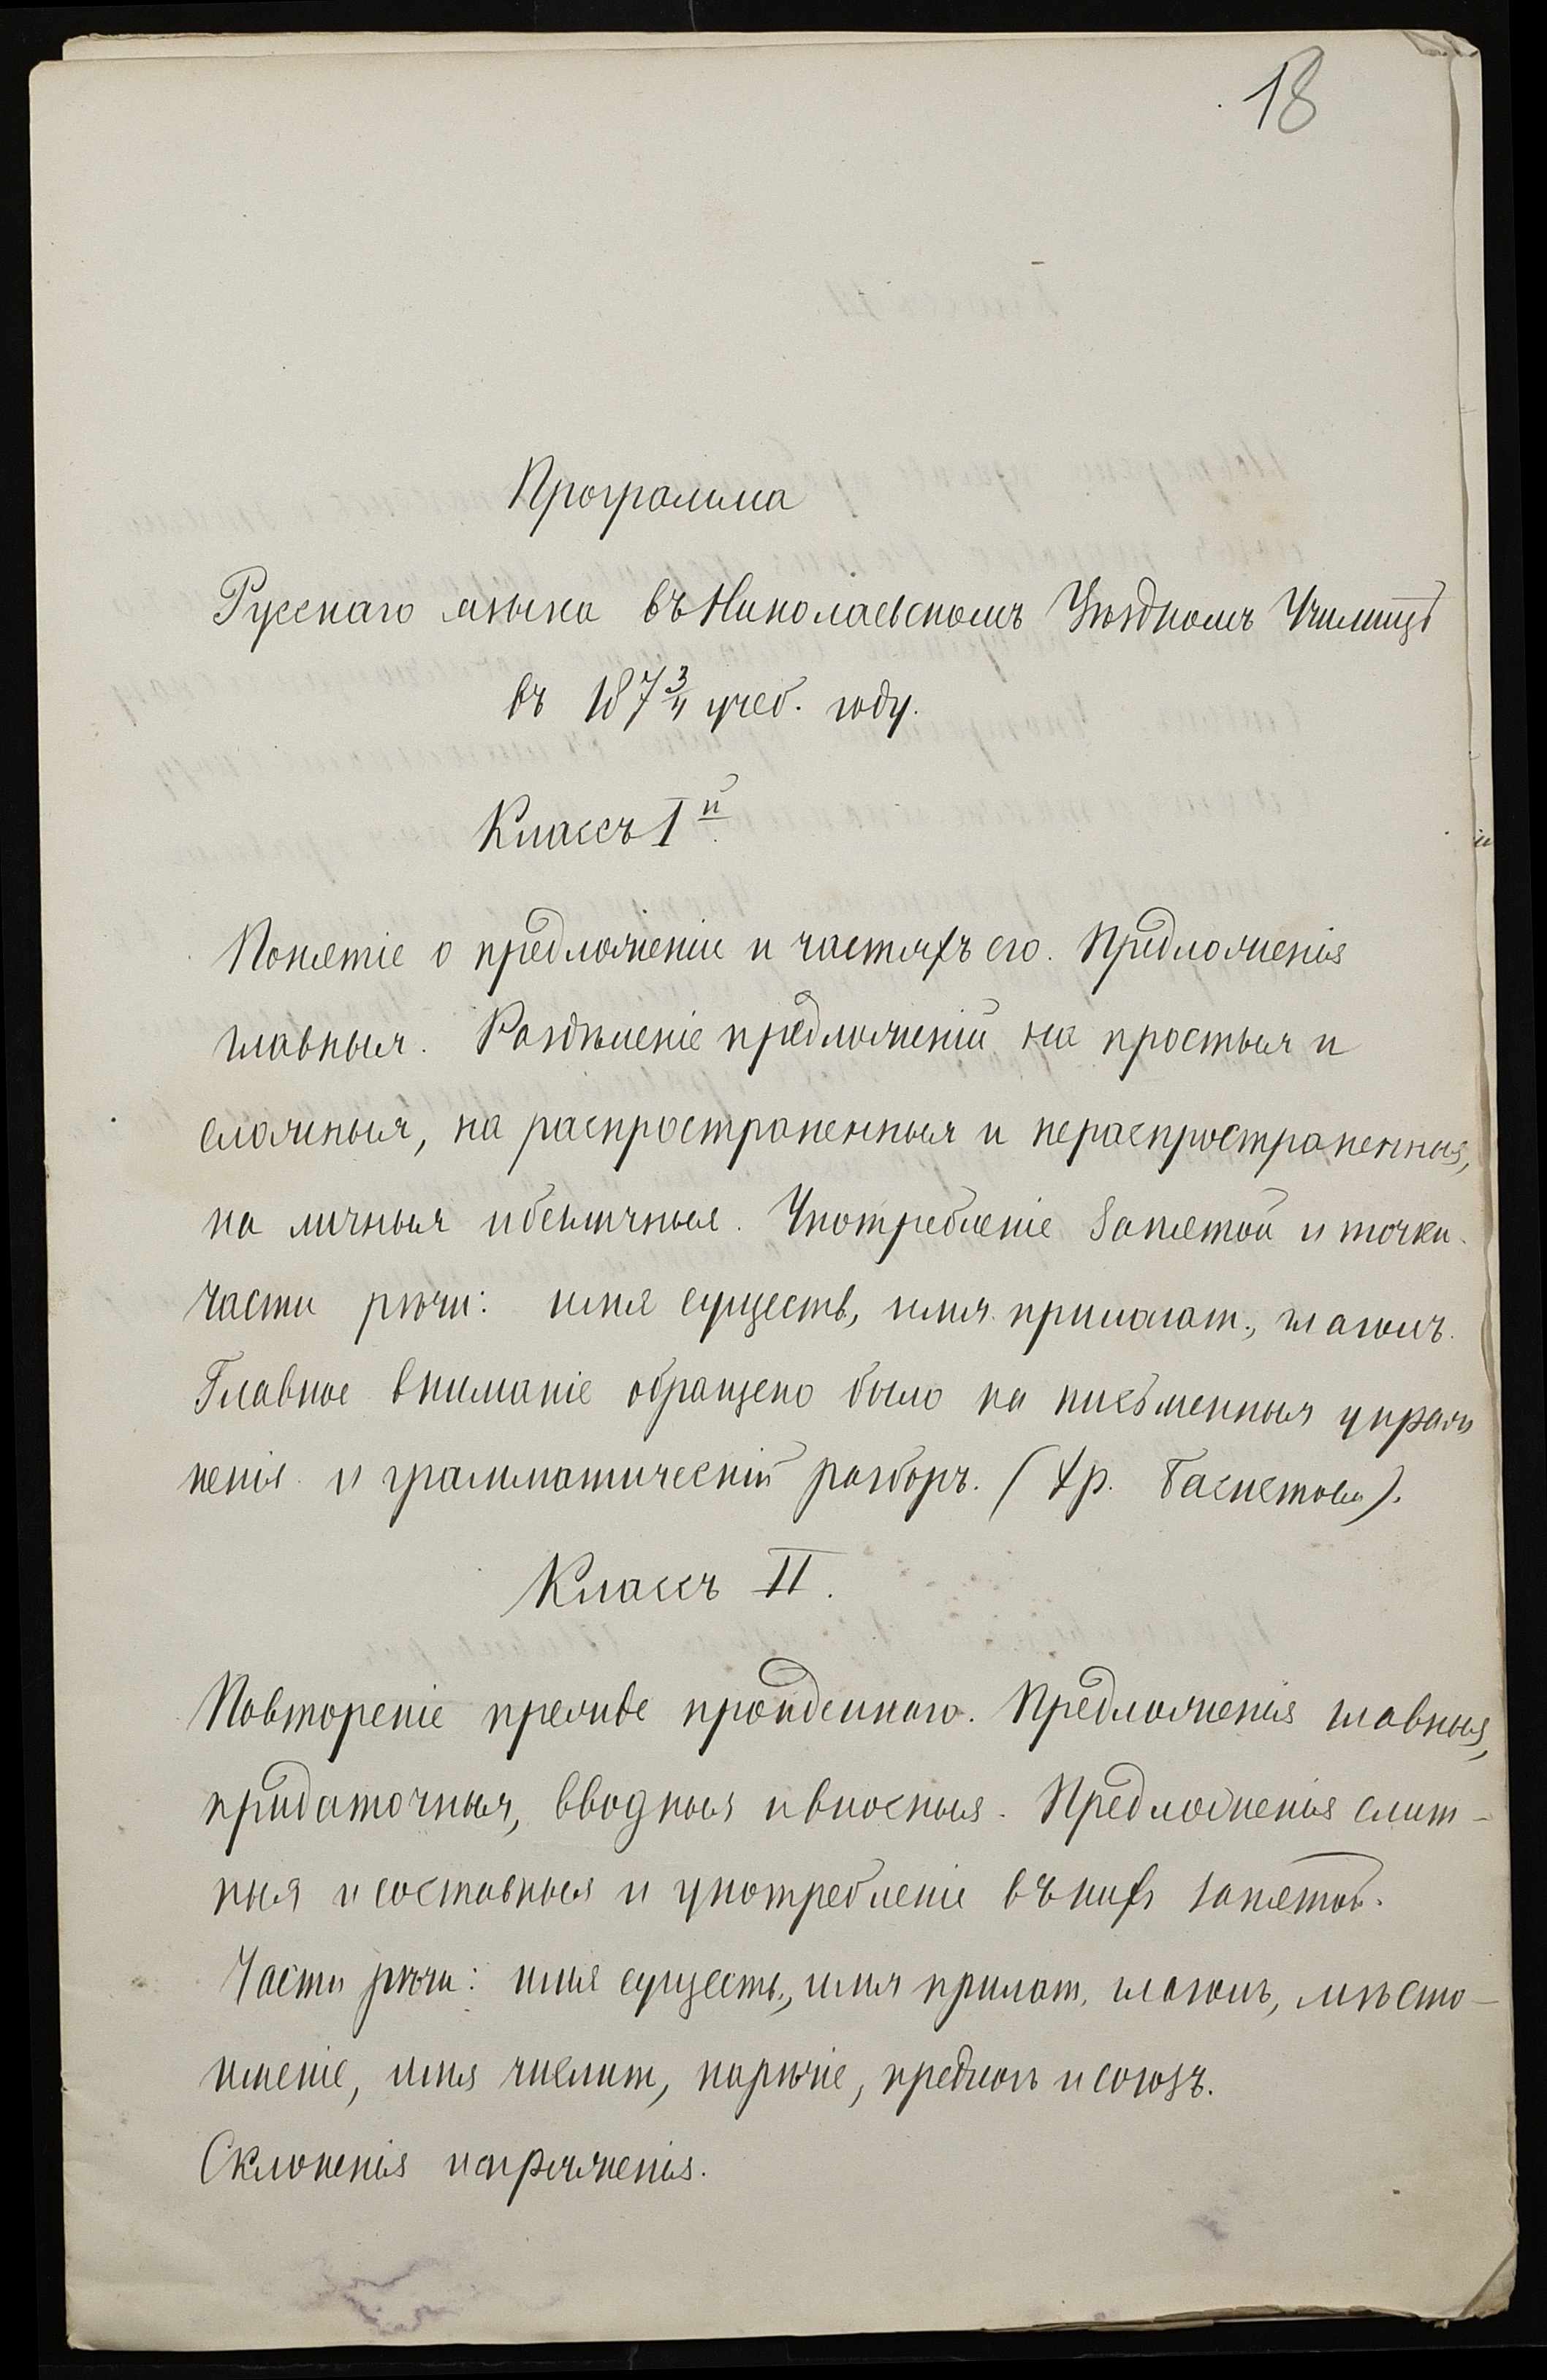 18
Программа
Русскаго языка въ Николаевскомъ Уѣздномъ Училищѣ
въ 187 3/4 учеб. году.
Классъ Iй.
Понятіе о предложеніи и частяхъ его. Предложенія
главныя. Раздѣленіе предложеній на простыя и
сложныя, на распространенныя и нераспространенныя,
на личныя и безличныя. Употребленіе запятой и точки.
Части рѣчи: имя существ, имя прилагат., глаголъ.
Главное вниманіе обращено было на письменныя упраж
ненія и грамматическій разборъ. (Хр. Басистова).
Классъ II.
Повтореніе прежде пройденнаго. Предложенія главныя,
придаточныя, вводныя и вносныя. Предложенія слит-
ныя и составныя и употребленіе въ нихъ запятой.
Части рѣчи: имя существ., имя прилаг, глаголъ, мѣсто-
именіе, имя числит, нарѣчіе, предлогъ и союзъ.
Склоненія и спряженія.